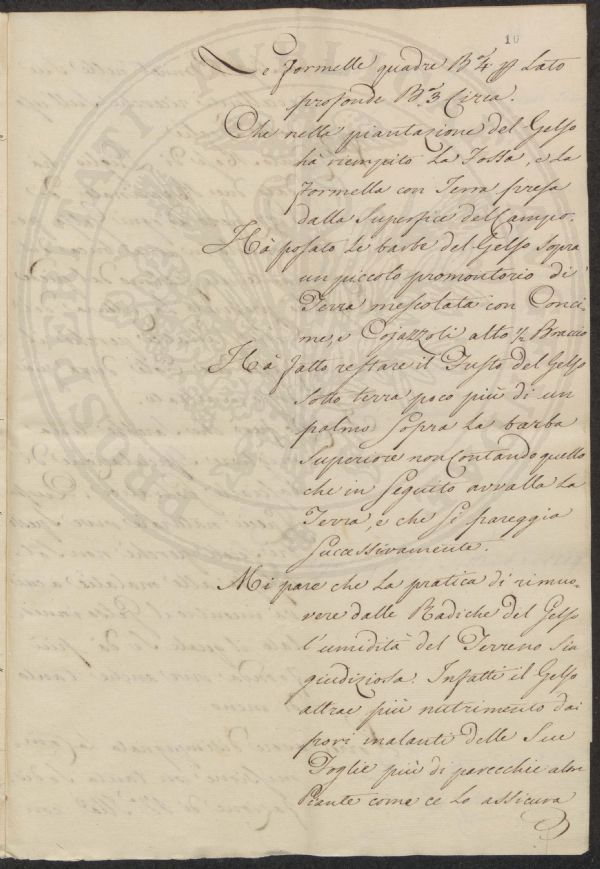 10
Le formelle quadre B.ª 4. p Lato
profonde B.ª 3 Circa.
Che nella piantazione del Gelso
ha riempito La Fossa, e La
formella con Terra presa
dalla Superfice del Campo.
Hà posato Le barbe del Gelso sopra
un piccolo promontorio di
Terra mescolata con Conci-
me, e Cojazzoli alto 1/2 Braccio
Hà fatto restare il Fusto del Gelso
Sotto terra poco più di un
palmo Sopra La barba
Superiore non Contando quello
che in Seguito avvalla La
Terra, e che Si pareggia
Successivamente.
Mi pare che La pratica di rimuo-
vere dalle Radiche del Gelso
l'umidità del Terreno Sia
giudiziosa. Infatti il Gelso
attrae più nutrimento dai
pori inalanti delle Sue
Foglie più di parecchie altre
Piante come ce Lo assicura